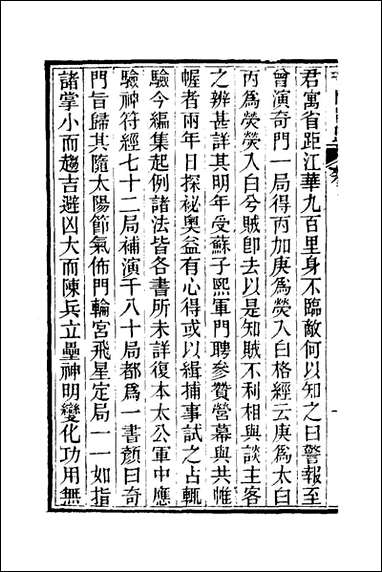 君寓省距江華九百里身不臨敵何以知之曰警報至
曾演奇門一局得丙加庚爲熒入白格經云庚爲太白
丙爲熒熒入白兮賊卽去以是知賊不利相與談主客
之辨甚詳其明年受蘇子熙軍門聘參贊營幕與共帷
幄者兩年日探祕奧益有心得或以緝捕事試之占輒
驗今編集起例諸法皆各書所未詳復本太公軍中應
驗神符經七十二局補演千八十局都爲一書顏曰奇
門旨歸其隨太陽節氣佈門輪宮飛星定局一一如指
諸掌小而趨吉避凶大而陳兵立壘神明變化功用無